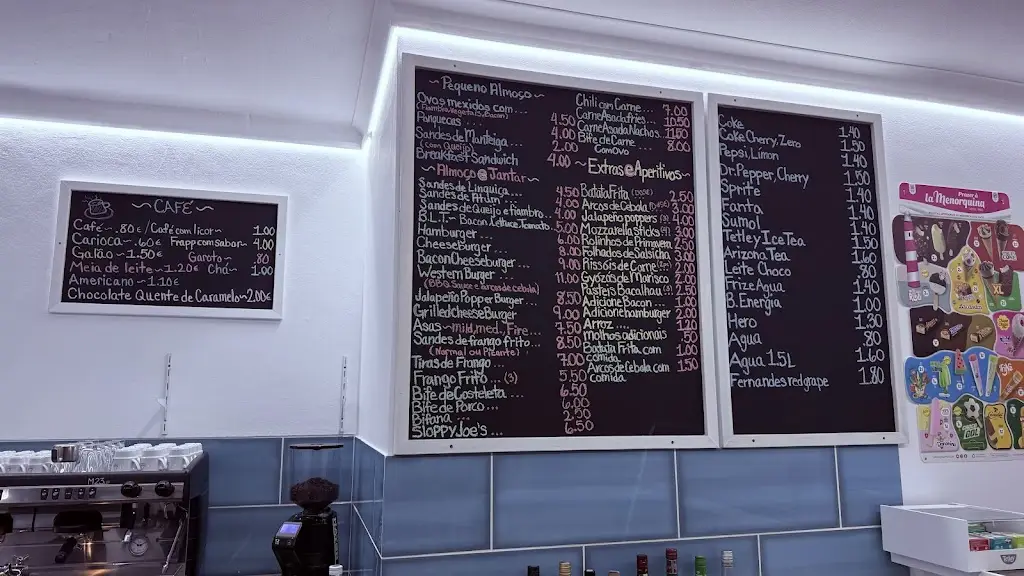 ~CAFÉ~
Café~.80€/Café com licor~ 1.00
Carioca~.60€ Frapp com sabor~ 4.00
Galão~1.50€ Garoto~ .80
Meia de leite~1.20€ Chá~ 1.00
Americano~1.10€
Chocolate Quente de Caramelo~2.00€
~Pequeno Almoço~
Ovos mexidos com...
Panquecas 4.50
Sandes de Manteiga 4.00
(com Queijo) 2.00
Breakfast Sandwich 4.00
~Almoço@Jantar~
Sandes de Linguiça... 4.50
Sandes de Atum
Sandes de Queijo e fiambro
B.L.T~ Bacon, Lettuce, Tomato
Hamburger
CheeseBurger
Bacon CheeseBurger
Western Burger 11.00
(BBQ Sauce e arcos de cebola)
Jalapeño Popper Burger... 8.50
Grilled CheeseBurger 9.00
Asas~mild, med, Fire... 7.50
Sandes de frango frito... 8.50
(Normal ou Picante)
Tiras de Frango... 7.00
Frango Frito...(3) 5.50
Bife de Costeleta... 6.50
Bife de Porco... 6.00
Bifana... 2.50
Sloppy Joe's... 6.50
Chili com Carne... 7.00
Carne Asada fries... 10.50
Carne Asada Nachos.. 11.50
Bife de Carne... 8.00
Com Ovo
~Extras@Aperitivos~
Batata Frita (dose) 2.50
Arcos de Cebola
Jalapeño poppers
Mozzarella sticks
Rolinhos de Primavera
Rolhados de Salsicha
Rissóis de Carne
Gyozas de Marisco
Pasteis Bacalhau
Adicione Bacon 1.00
Adicione hamburger 2.00
Arroz 1.20
molhos adicionais .50
Batata Frita com 1.00
comida
Arcos de Cebola com 1.50
comida
Coke 1.40
Coke Cherry, Zero 1.50
Pepsi, Limon 1.40
Dr. Pepper, Cherry 1.50
Sprite 1.40
Fanta 1.40
Sumol 1.40
Tetley Ice Tea 1.50
Arizona Tea 1.60
Leite Choco .80
Frize Agua 1.40
B. Energia 1.00
Hero 1.30
Agua .80
Agua 1.5L 1.60
Fernandes red grape 1.80
Prova a
la Menorquina
M23